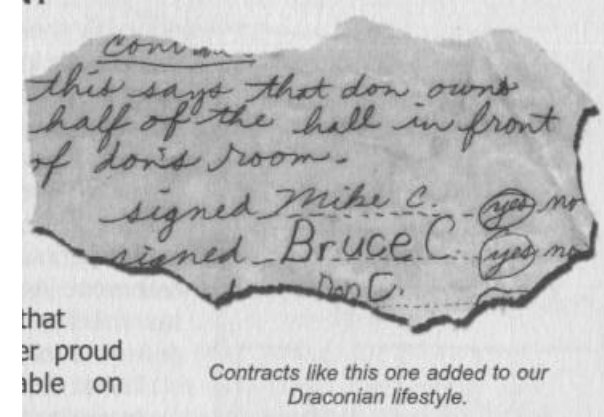 this says that don owns
half of the hall in front
of don's room.
signed Mike C. yes no
signed Bruce C. yes no
Don C.
that
proud
on
Contracts like this one added to our
Draconian lifestyle.